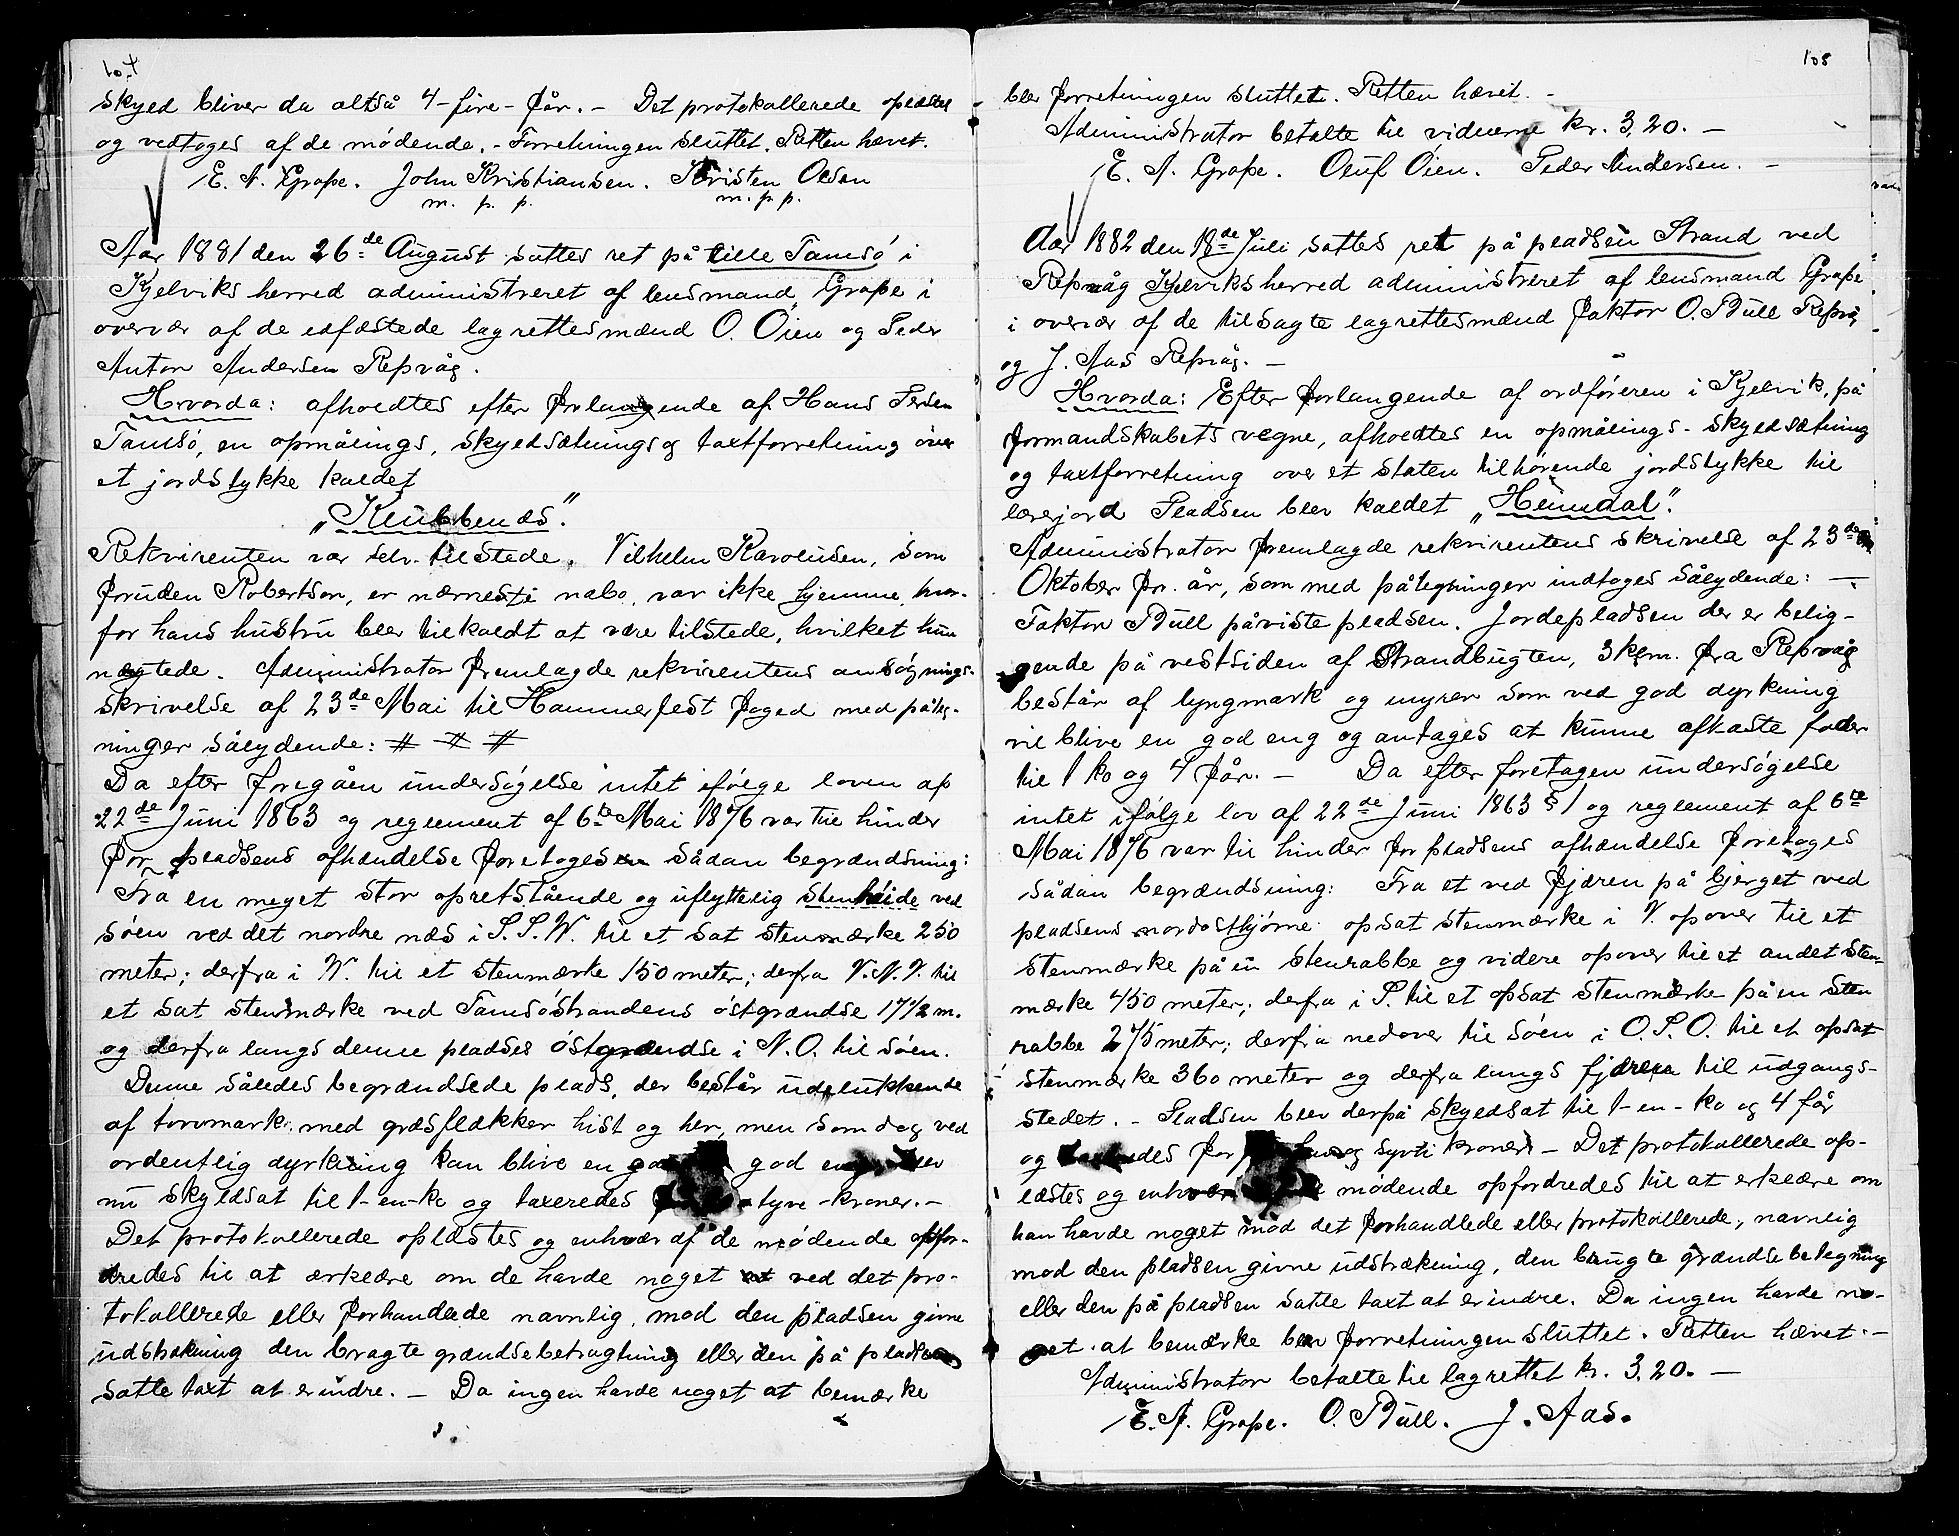 107
skyld bliver da altså 4-fire-får. - Det protokollerede oplæstes
og vedtoges af de mødende. - Forretningen sluttet. Retten hævet.
E. A. Grape. John Kristiansen. Kristen Olsen
m. p. p. m. p. p.
Aar 1881 den 26de August sattes ret på lille Tamsö i
Kjelviks herred administreret af lensmand Grape i
overvær af de edfæstede lagrettesmænd O. Öien og Peder
Anton Andersen Repvåg.
Hvorda: afholdtes efter forlangende af Hans
Tamsö, en opmålings, skyldsætnings og taxtforretning over
et jordstykke kaldet
"Klubbenæs".
Rekvirenten var selv tilstede. Vilhelm Karolusen, som
foruden Robertson, er nærmeste nabo, var ikke hjemme, hvor-
for hans hustru blev tilkaldt at være tilstede, hvilket hun
nægtede. Administrator fremlagde rekvirentens ansögnings-
skrivelse af 23de Mai til Hammerfest foged med påteg-
ninger sålydende: # # #
Da efter foregåen undersögelse intet ifölge loven af
22de Juni 1863 og reglement af 6te Mai 1876 var til hinder
for pladsens afhændelse foretoges sådan begrændsning:
Fra en meget stor opretstående og uflyttelig stenheide ved
söen ved det nordre næs i S.S.W. til et sat stenmærke 250
meter; derfra i W. til et stenmærke 150 meter; derfra V.N.V. til
et sat stenmærke ved Tamsöstrandens östgrændse 171/2 m.
og derfra langs denne pladses östgrændse i N.O. til söen.
Denne således begrændsede plads, der består udelukkende
af torvmark, med græsflækker hist og her, men som dog ved
ordentlig dyrkning kan blive en god
nu skyldsat til 1-en-ko og taxeredes tyve-kroner. -
Det protokollerede oplæstes og enhver af de mödende opfor-
dredes til at ærkære om de havde noget ved det pro-
tokollerede eller forhandlede navnlig, mod den pladsen givne
udstrækning den bragte grændsebetragtning eller den på pladsen
satte taxt at erindre. - Da ingen havde noget at bemærke
108
blev forretningen sluttet. Retten hævet. -
Administrator betalte til vidnerne kr. 3,20. -
E. A. Grape. Oluf Öien. Peder Andersen. -
Aar 1882 den 18de Juli sattes ret på pladsen Strand ved
Repvåg Kjelviks herred administreret af lensmand Grape
i overvær af de tilsagte lagrettesmænd faktor O. Bull Repvåg
og J. Aas Repvåg. -
Hvorda: Efter forlangende af ordföreren i Kjelvik, på
formandskabets vegne, afholdtes en opmålings- skyldsætning
og taxtforretning over et staten tilhörende jordstykke til
lærerjord Pladsen blev kaldet "Heimdal".
Administrator fremlagde rekvirentens skrivelse af 23de
Oktober fr. år, som med påtegninger indtoges sålydende: -
Faktor Bull påviste pladsen. Jordepladsen der er belig-
gende på vestsiden af Strandbugten, 3 kgm. fra Repvåg
består af lyngmark og myrer som ved god dyrkning
vil blive en god eng og antages at kunne afkaste foder
til 1 ko og 4 får. - Da efter foretagen undersögelse
intet ifölge lov af 22de Juni 1863 § 1 og reglement af 6te
Mai 1876 var til hinder for pladsens afhændelse foretoges
sådan begrændsning: Fra et ved fjæren på bjerget ved
pladsens nordosthjörne opsat stenmærke i V. opover til et
stenmærke på en stenrabbe og videre opover til et andet sten-
mærke 450 meter; derfra i S. til et opsat stenmærke på en sten
rabbe 275 meter; derfra nedover til söen i O.S.O. til et opsat
stenmærke 360 meter og derfra langs fjæren til udgangs-
stedet. - Pladsen blev derpå skyldsat til 1-en-ko og 4 får
og for syvti kroner - Det protokollerede op-
læstes og enhver mödende opfordredes til at erkære om
han havde noget mod det forhandlede eller protokollerede, navnlig
mod den pladsen givne udstrækning, den brugte grændsebetegning
eller den på pladsen satte taxt at erindre. Da ingen havde no-
get at bemærke blev forretningen sluttet. Retten hævet. -
Administrator betalte til lagrettet kr. 3,20. -
E. A. Grape. O. Bull. J. Aas.